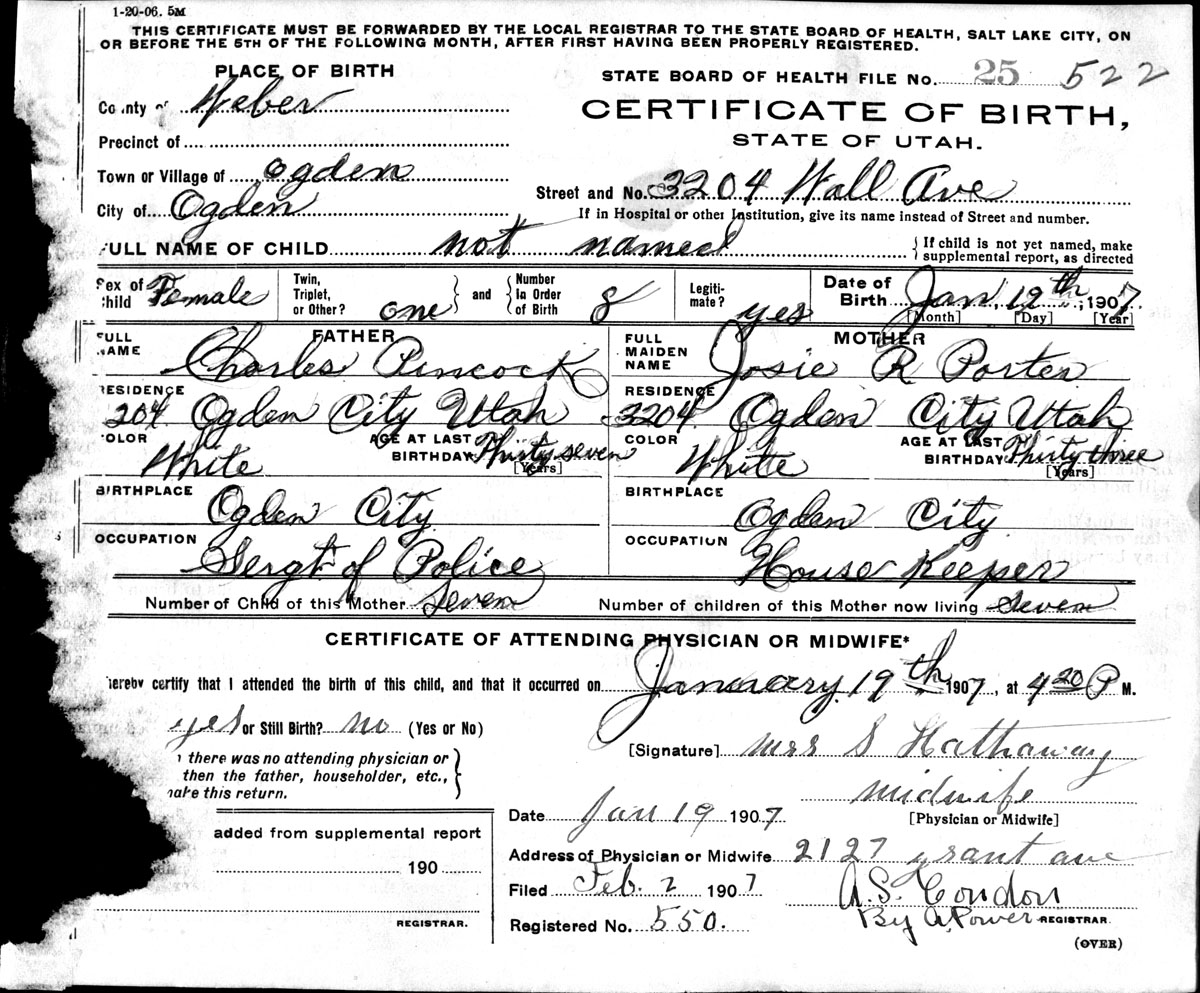 1-20-06. 5M
THIS CERTIFICATE MUST BE FORWARDED BY THE LOCAL REGISTRAR TO THE STATE BOARD OF HEALTH, SALT LAKE CITY, ON
OR BEFORE THE 5TH OF THE FOLLOWING MONTH, AFTER FIRST HAVING BEEN PROPERLY REGISTERED.
PLACE OF BIRTH
STATE BOARD OF HEALTH FILE No. 25 522
County of Weber
CERTIFICATE OF BIRTH,
STATE OF UTAH.
Precinct of
Town or Village of Ogden
Street and No. 3204 Wall Ave
City of Ogden
If in Hospital or other Institution, give its name instead of Street and number.
FULL NAME OF CHILD not named { If child is not yet named, make supplemental report, as directed
Sex of Child Female
Twin, Triplet, or Other? one } and { Number in Order of Birth 8
Legiti-mate? yes
Date of Birth Jan, 19th, 1907.
[Month] [Day] [Year]
FATHER
FULL NAME Charles Pincock
RESIDENCE 204 Ogden City Utah
COLOR White
AGE AT LAST BIRTHDAY Thirty seven
[Years]
BIRTHPLACE Ogden City
OCCUPATION Sergt of Police
MOTHER
FULL MAIDEN NAME Josie R Porter
RESIDENCE 3204 Ogden City Utah
COLOR White
AGE AT LAST BIRTHDAY Thirty three
[Years]
BIRTHPLACE Ogden City
OCCUPATION House Keeper
Number of Child of this Mother Seven Number of children of this Mother now living Seven
CERTIFICATE OF ATTENDING PHYSICIAN OR MIDWIFE*
hereby certify that I attended the birth of this child, and that it occurred on January 19th 1907, at 4 20 P M.
yes or Still Birth? no (Yes or No)
[Signature] Mrs S Hathaway
there was no attending physician or
then the father, householder, etc.,
make this return.
midwife
[Physician or Midwife]
Date Jan 19 1907
added from supplemental report
190
REGISTRAR.
Address of Physician or Midwife 2127 grant ave
Filed Feb. 2 1907
A. S. Condon
By A. Power REGISTRAR.
Registered No. 550.
(OVER)